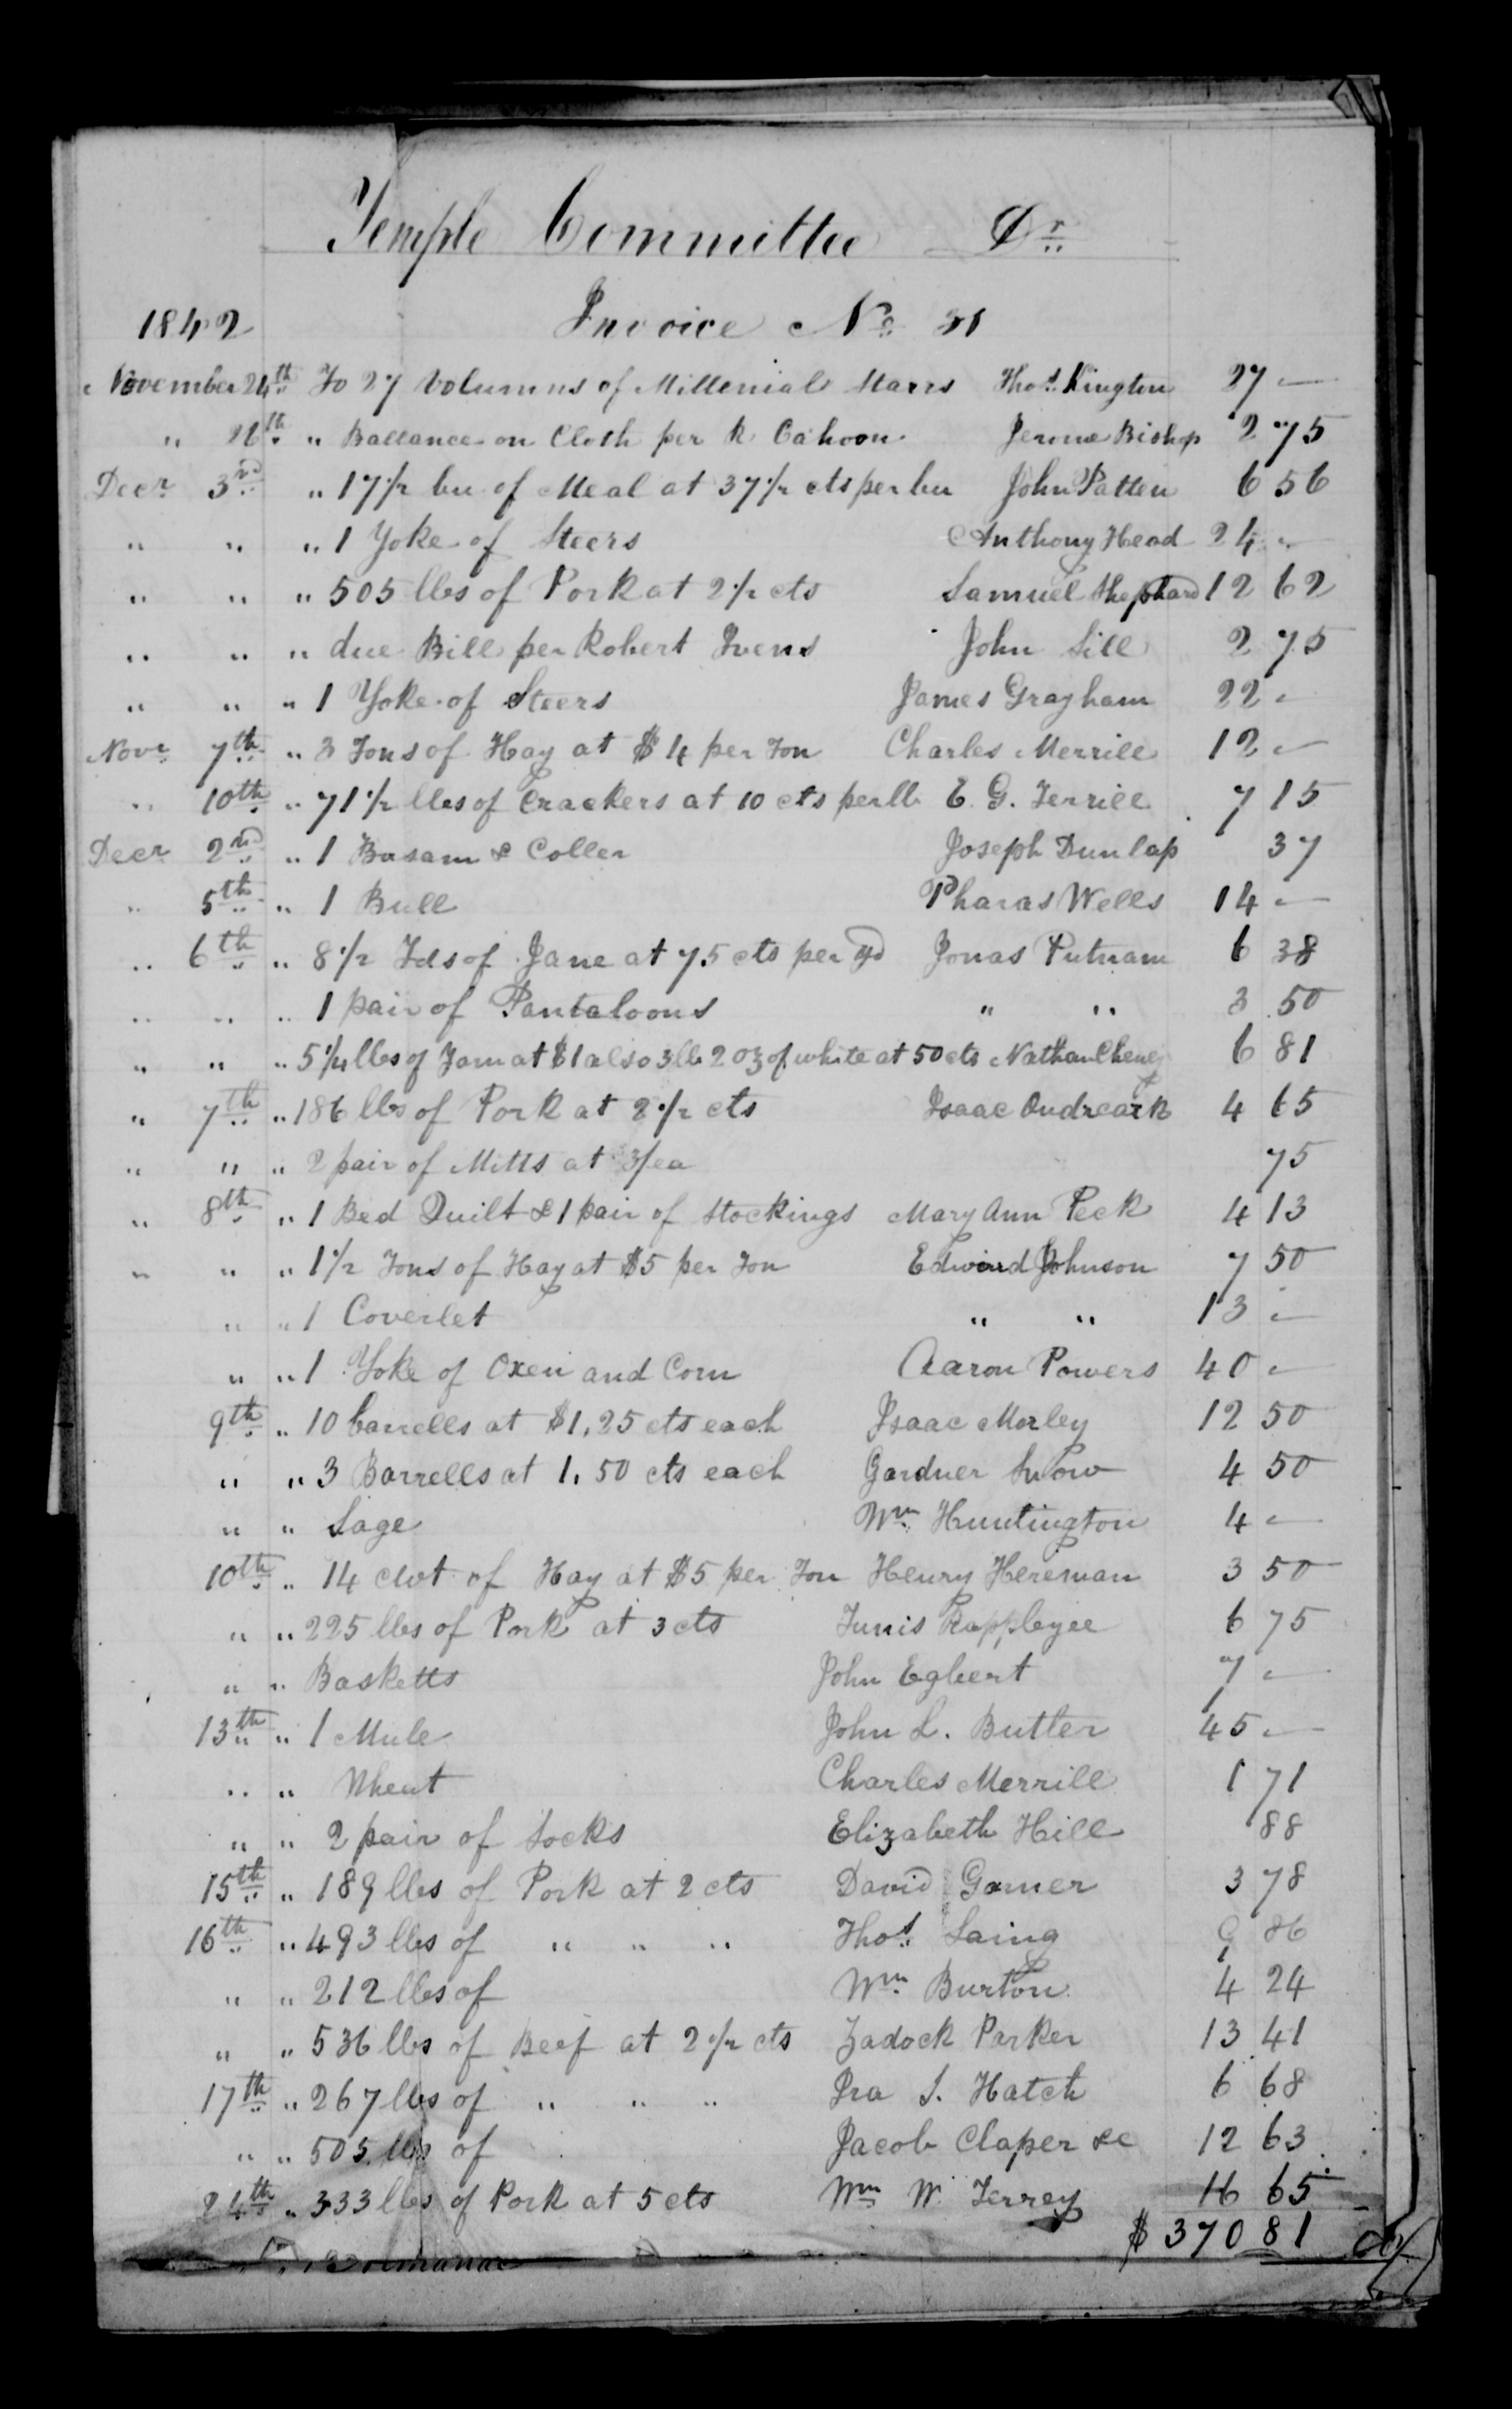 Temple Committee Dr
1842 Invoice No 21
November 24th To 27 Volumns of Millenial Starrs Thos. Kington 27 —
" 26th " Ballance on Cloth per R Cahoon Jerome Bishop 2 75
Decr 3rd " 17 1/2 bu of Meal at 37 1/2 cts per bu John Patten 6 56
" " " 1 Yoke of Steers Anthony Head 24 —
" " " 505 lbs of Pork at 2 1/2 cts Samuel Shephard 12 62
" " " due Bill per Robert Ivens John Sill 2 75
" " " 1 Yoke of Steers James Grayham 22 —
Novr 7th " 3 Tons of Hay at $4 per Ton Charles Merrill 12 —
" 10th " 71 1/2 lbs of Crackers at 10 cts per lb E. G. Terrill 7 15
Decr 2nd " 1 Busam & Coller Joseph Dunlap 37
" 5th " 1 Bull Pharas Wells 14 —
" 6th " 8 1/2 Yds of Jane at 75 cts per yd Jonas Putnam 6 38
" " " 1 pair of Pantaloons " " 3 50
" " " 5 1/4 lbs of Yarn at $1 also 3 lb 2 oz of white at 50 cts Nathan Cheney 6 81
" 7th " 186 lbs of Pork at 2 1/2 cts Isaac 4 65
" " " 2 pair of Mitts at 3/ ea 75
" 8th " 1 Bed Quilt & 1 pair of Stockings Mary Ann Peck 4 13
" " " 1 1/2 Tons of Hay at $5 per Ton Edward Johnson 7 50
" " 1 Coverlet " " 13 —
" " 1 Yoke of Oxen and Corn Aaron Powers 40 —
9th " 10 barrells at $1,25 cts each Isaac Morley 12 50
" " 3 Barrells at 1.50 cts each Gardner Snow 4 50
" " Sage Wm Huntington 4 —
10th " 14 cwt of Hay at $5 per Ton Henry Hereman 3 50
" " 225 lbs of Pork at 3 cts Tunis Rappleyee 6 75
" " Basketts John Egbert 7 —
13th " 1 Mule John L. Butler 45 —
" " Wheat Charles Merrill 1 71
" " 2 pair of Socks Elizabeth Hill 88
15th " 189 lbs of Pork at 2 cts David Garner 3 78
16th " 493 lbs of " " " Thos. Laing 9 86
" " 212 lbs of Wm Burton 4 24
" " 536 lbs of Beef at 2 1/2 cts Zadock Parker 13 41
17th " 267 lbs of " " " Ira S. Hatch 6 68
" " 505 lbs of Jacob Claper &c 12 63
24th " 333 lbs of Pork at 5 cts Wm W. Terrey 16 65
$ 370 81